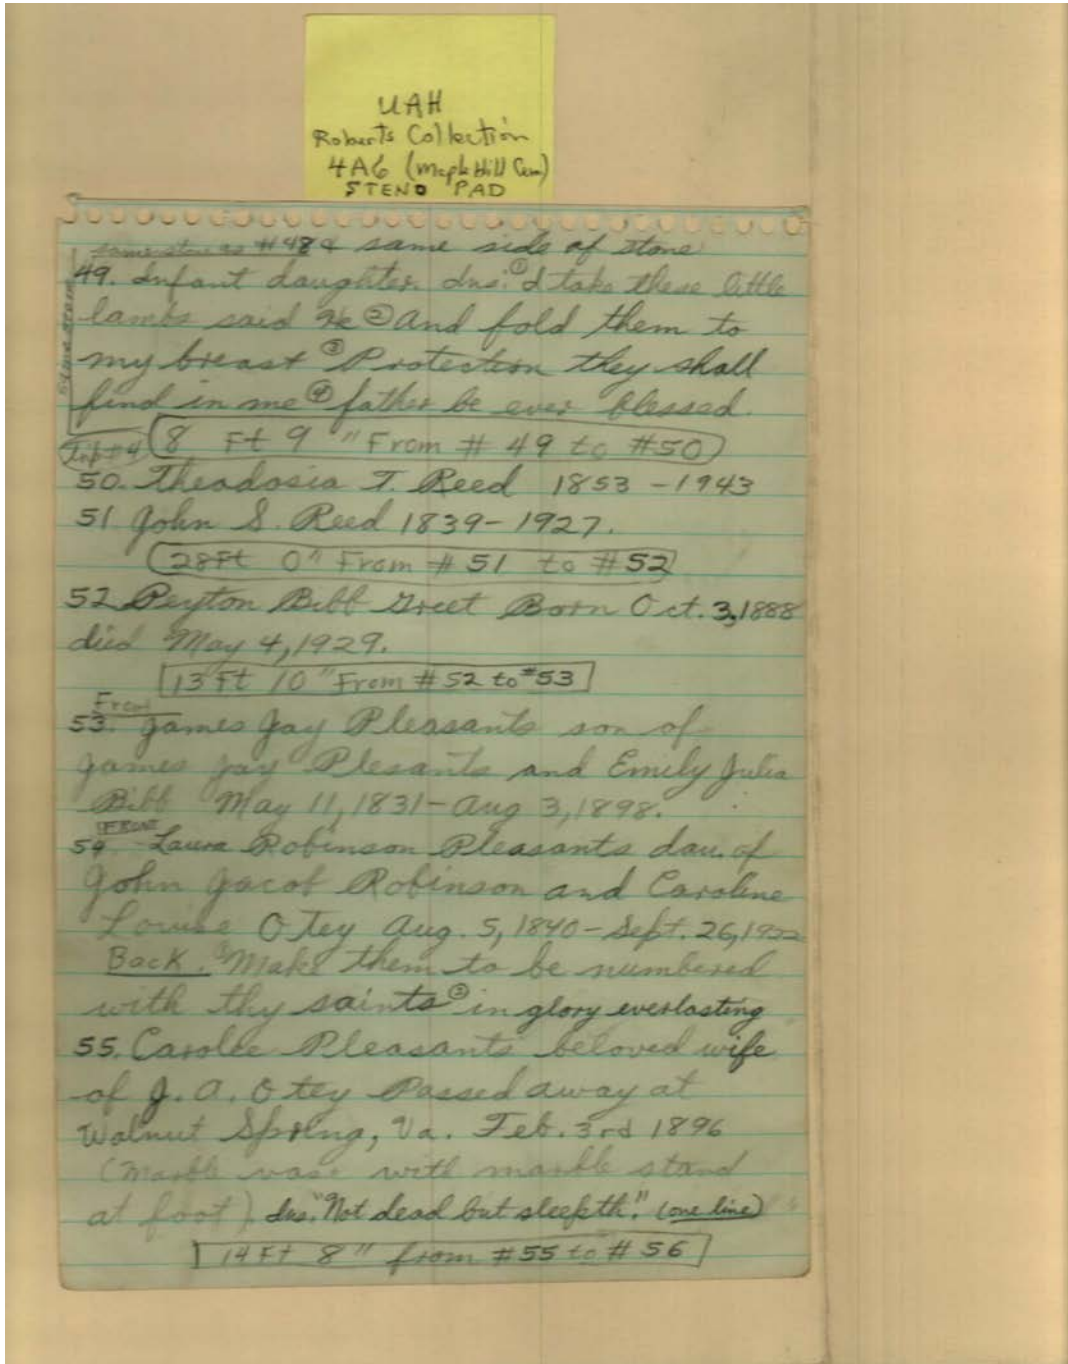 UAH
Roberts Collection
4A6 (Maple Hill Cem)
STENO PAD
same stone as #48 & same side of stone
49. Infant daughter. Ins: ① I take these little
lambs said He ② And fold them to
my breast ③ Protection they shall
find in me ④ father be ever blessed.
8 Ft 9 " From # 49 to #50
50. Theodosia T. Reed 1853 - 1943
51 John S. Reed 1839 - 1927.
28 Ft 0" From # 51 to #52
52 Peyton Bibb Greet Born Oct. 3, 1888
died May 4, 1929.
13 Ft 10 " From # 52 to #53
Front
53. James Jay Pleasants son of
James Jay Plesants and Emily Julia
Bibb May 11, 1831 - Aug 3, 1898.
FRONT
54. Laura Robinson Pleasants dau. of
John Jacob Robinson and Caroline
Louise Otey Aug. 5, 1840 - Sept. 26, 1922
Back. ① Make them to be numbered
with thy saints ② in glory everlasting
55. Carolee Pleasants beloved wife
of J. A. Otey Passed away at
Walnut Spring, Va. Feb. 3rd 1896
(Marble vase with marble stand
at foot). Ins. "Not dead but sleepth." (one line)
14 Ft 8" from #55 to # 56